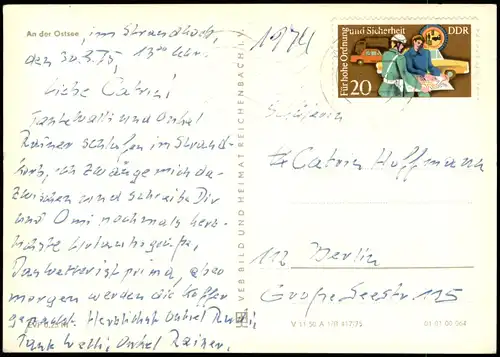 An der Ostsee, im Strandkorb,
den 30.8.75, 13⁰⁰ Uhr.
Liebe Catrin!
Tante Walli und Onkel
Rainer schlafen im Strand-
korb, ich zwänge mich da-
zwischen und schreibe Dir
und Omi nochmals herz-
lichste Urlaubsgrüße,
Das Wetter ist prima, aber
morgen werden die Koffer
gepackt. Herzlichst Onkel Rudi,
Tante Walli, Onkel Rainer,
VEB BILD UND HEIMAT REICHENBACH i. V.
1974
Für hohe Ordnung und Sicherheit
DDR
20
Catrin Hoffmann
112 Berlin
Große Seestr. 125
V 11 50 A 1/B 417/75
01 01 00 064